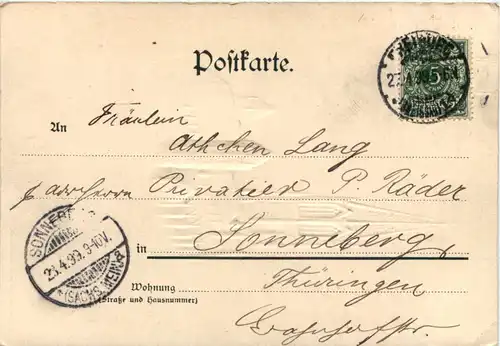 Postkarte.
FREIBURG
5
An Fräulein
Käthchen Lang
p. adr. Herrn Privatier P. Räder
in Sonneberg,
Thüringen
Wohnung
(Straße und Hausnummer)
Bahnhofstr.
SONNEBERG
25.4.99. 9-10V.
(SACHS. MEIN.)